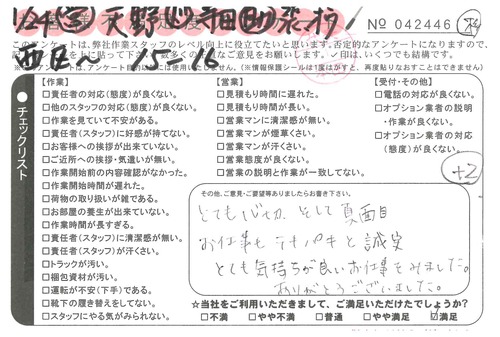 No 042446
このアンケートは、弊社作業スタッフのレベル向上に役立てたいと思います。否定的なアンケートになりますので、
ご意見をお願いします。✓印は、いくつでも結構です。
(※情報保護シールは1度はがすと、再度貼りなおすことはできません)
チェックリスト
【作業】
□責任者の対応(態度)が良くない。
□他のスタッフの対応(態度)が良くない。
□作業を見ていて不安がある。
□責任者(スタッフ)に好感が持てない。
□お客様への挨拶が出来ていない。
□ご近所への挨拶・気遣いが無い。
□作業開始前の内容確認がなかった。
□作業開始時間が遅れた。
□荷物の取り扱いが雑である。
□お部屋の養生が出来ていない。
□作業時間が長すぎる。
□責任者(スタッフ)に清潔感が無い。
□責任者(スタッフ)が汗くさい。
□トラックが汚い。
□梱包資材が汚い。
□運転が不安(下手)である。
□靴下の履き替えをしてない。
□スタッフにやる気がみられない。
【営業】
□見積もり時間に遅れた。
□見積もり時間が長い。
□営業マンに清潔感が無い。
□営業マンが煙草くさい。
□営業マンが汗くさい。
□営業態度が良くない。
□営業の説明と作業が一致してない。
【受付・その他】
□電話の対応が良くない。
□オプション業者の説明
・作業が良くない。
□オプション業者の対応
(態度)が良くない。
+2
その他、ご意見・ご要望等ありましたらお書き下さい。
とても親切、そして真面目
お仕事もテキパキと誠実
とても気持ちが良いお仕事をみました。
ありがとうございました。
☆当社をご利用いただきまして、ご満足いただけたでしょうか?
□不満 □やや不満 □普通 □やや満足 ☑満足